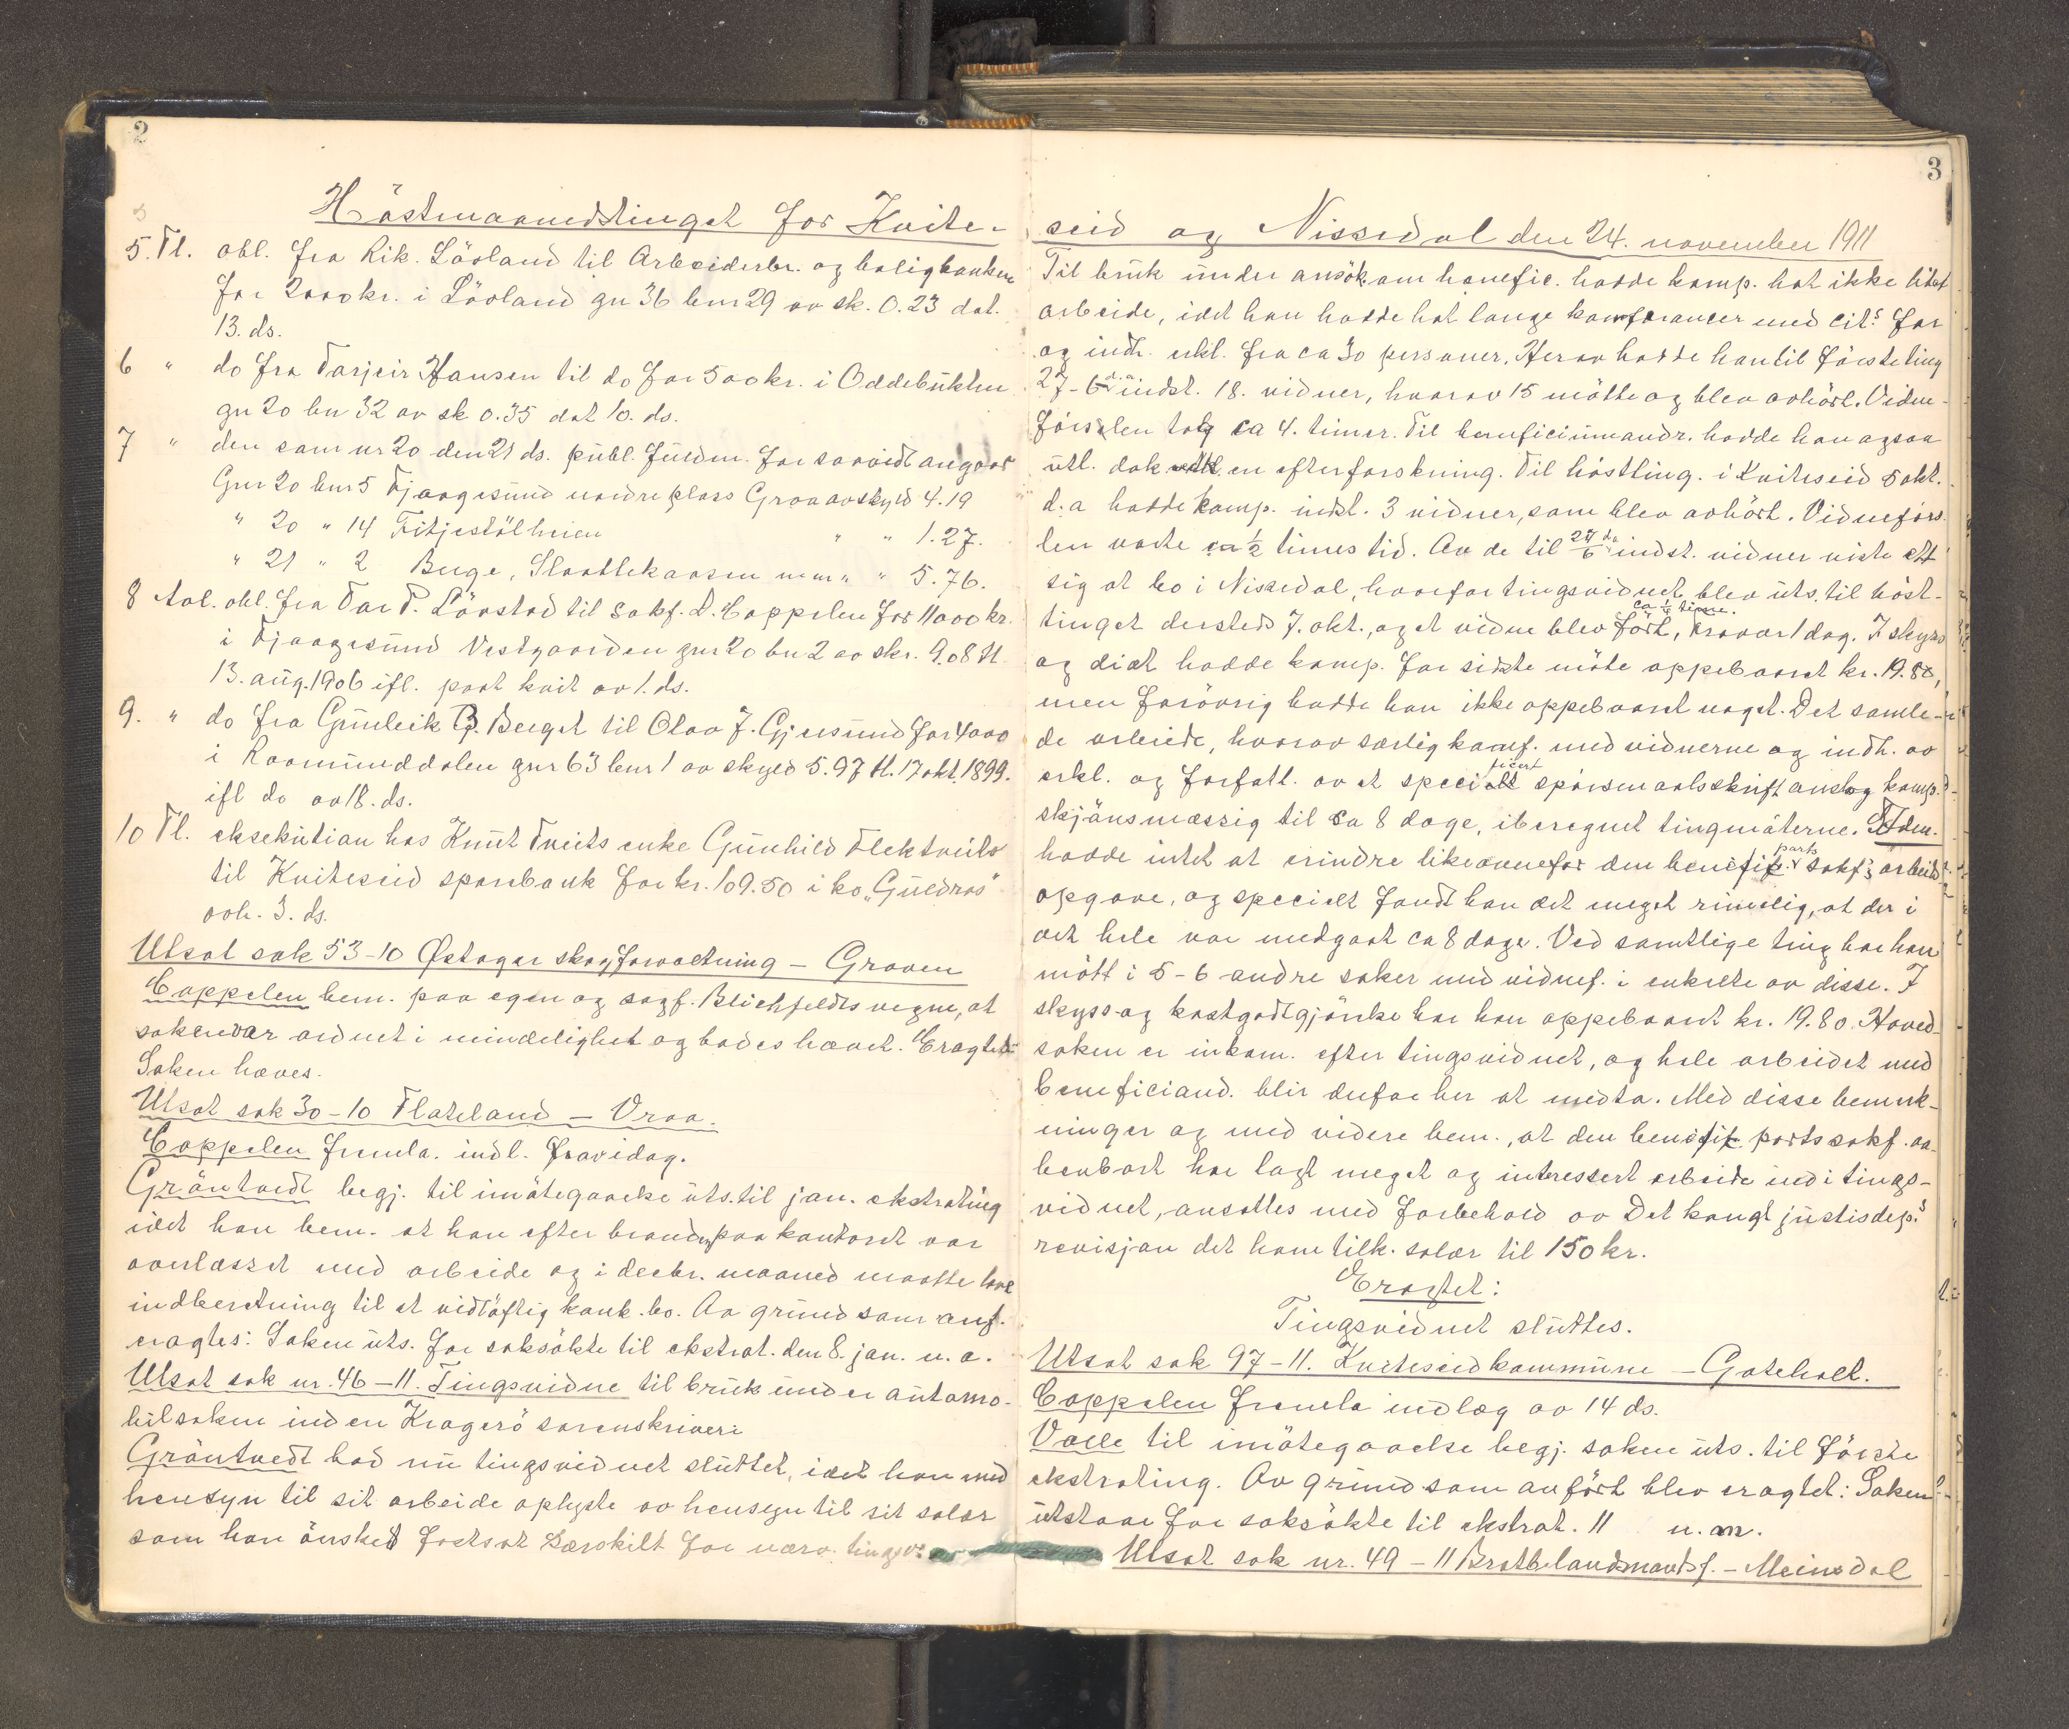 2
Höstmaanedstinget for Kvite-
5. Tl. obl. fra Rik. Löoland til Arbeiderbr. og boligbanken
for 2000 kr. i Löoland gn 36 bnr 29 av sk. 0.23 dat.
13. ds.
6 " do fra Tarjeir Hansen til do for 500 kr. i Oddebukten
gn 20 bn 32 av sk 0.35 dat 10. ds.
7 " den sam nr 20 den 21 ds. publ. fuldm. for saavidt angaar
Gnr 20 bnr 5 Fjaagesund nordre plass Graa av skyld 4.19
" 20 " 14 Fitjestölheien " " 1.27.
" 21 " 2 Berge, Slaattekaasen m m " " 5.76.
8 Avl. obl. fra Tar T. Lönstad til sakf. D. Cappelen for 11000 kr.
i Fjaagesund Vestgaarden gnr 20 bn 2 av skr. 9.08 tl.
13. aug. 1906 ifl. paat kvit av 1. ds.
9. " do fra Gunleik B. Berget til Olav J. Gjersund for 4000
i Raamunddalen gnr 63 bnr 1 av skyld 5.97 tl. 17 okt. 1899.
ifl do av 18. ds.
10 Tl. eksekution hos Knut Tveits enke Gunhild Flektveits
til Kviteseid sparebank for kr. 109.50 i ko "Guldros"
avh. 3. ds.
Utsat sak 53-10 Østager skogforvaltning - Graven
Cappelen bem. paa egen og sagf. Blichfeldts vegne, at
saken var ordnet i mindelighet og bades hævet. Eragtet:
Saken hæves.
Utsat sak 30-10 Flateland - Vraa.
Cappelen fremla. indl. fra idag.
Gröntvedt begj. til imötegaaelse uts. til jan. ekstrating
idet han bem. at han efter branden paa kontoret var
overlæsset med arbeide og i decbr. maaned maatte lave
indberetning til et vidlöftig konk. bo. Av grund som anf.
eragtes: Saken uts. for saksökte til ekstrat. den 8. jan. n. a.
Utsat sak nr. 46-11. Tingsvidne til bruk under automo-
bilsaken inden Kragerö sorenskriveri
Gröntvedt bad nu tingsvidnet sluttet, idet han med
hensyn til sit arbeide oplyste av hensyn til sit salær
som han önsket fastsat særskilt for nærv. tingsv.
3
seid og Nissedal den 24. november 1911
Til bruk under ansök. om benefic. hadde komp. hat ikke litet
arbeide, idet han hadde hat lange konferancer med cit.s far
og indh. erkl. fra ca 30 personer. Herav hadde han til förste ting
27-6 d. a indst. 18. vidner, hvorav 15 mötte og blev avhört. Vidne-
förselen tog ca 4. timer. Til beneficiumandr. hadde han ogsaa
utl. dok en efterforskning. Til höstting. i Kviteseid 5 okt.
d. a hadde komp. indst. 3 vidner, som blev avhört. Vidneförs-
len varte ca 1/2 times tid. Av de til 27/6 d. a indst. vidner viste ett
sig at bo i Nissedal, hvorfor tingsvidnet blev uts. til höst-
tinget dersteds 7. okt., og et vidne blev fört, ca 1/4 time. hvorav 1 dag. I skyss
og diæt hadde komp. for sidste möte oppebaaret kr. 19.80,
men forövrig hadde han ikke oppebaaret noget. Det samle-
de arbeide, hvorav særlig konf. med vidnerne og indh. av
erkl. og forfatt. av et specificert spörsmaalsskrift anslog komp.
skjönsmæssig til ca 8 dage, iberegnet tingmöterne. Stdm.
hadde intet at erindre likeoverfor den benefic. parts sakf.s arbeids
opgave, og specielt fandt han det meget rimelig, at der i
det hele var medgaat ca 8 dage. Ved samtlige ting har han
mött i 5-6 andre saker med vidnef. i enkelte av disse. I
skyss- og kostgodtgjörelse har han oppebaaret kr. 19.80. Hoved-
saken er inkom. efter tingsvidnet, og hele arbeidet med
beneficiand. blir derfor her at medta. Med disse bemerk-
ninger og med videre bem., at den benefic. parts sakf. aa-
benbart har lagt meget og interessert arbeide ind i tings-
vidnet, ansattes med forbehold av Det kongl justisdep.s
revisjon det ham tilk. salær til 150 kr.
Eragtet:
Tingsvidnet sluttes.
Utsat sak 97-11. Kviteseid kommune - Gateholt.
Cappelen fremla indlæg av 14 ds.
Valle til imötegaaelse begj. saken uts. til förste
ekstrating. Av grund som anfört blev eragtet: Saken
utstaar for saksökte til ekstrat. 11 n. m.
Utsat sak nr. 49-11 Bratbelandsmantsf. - Meinsdal